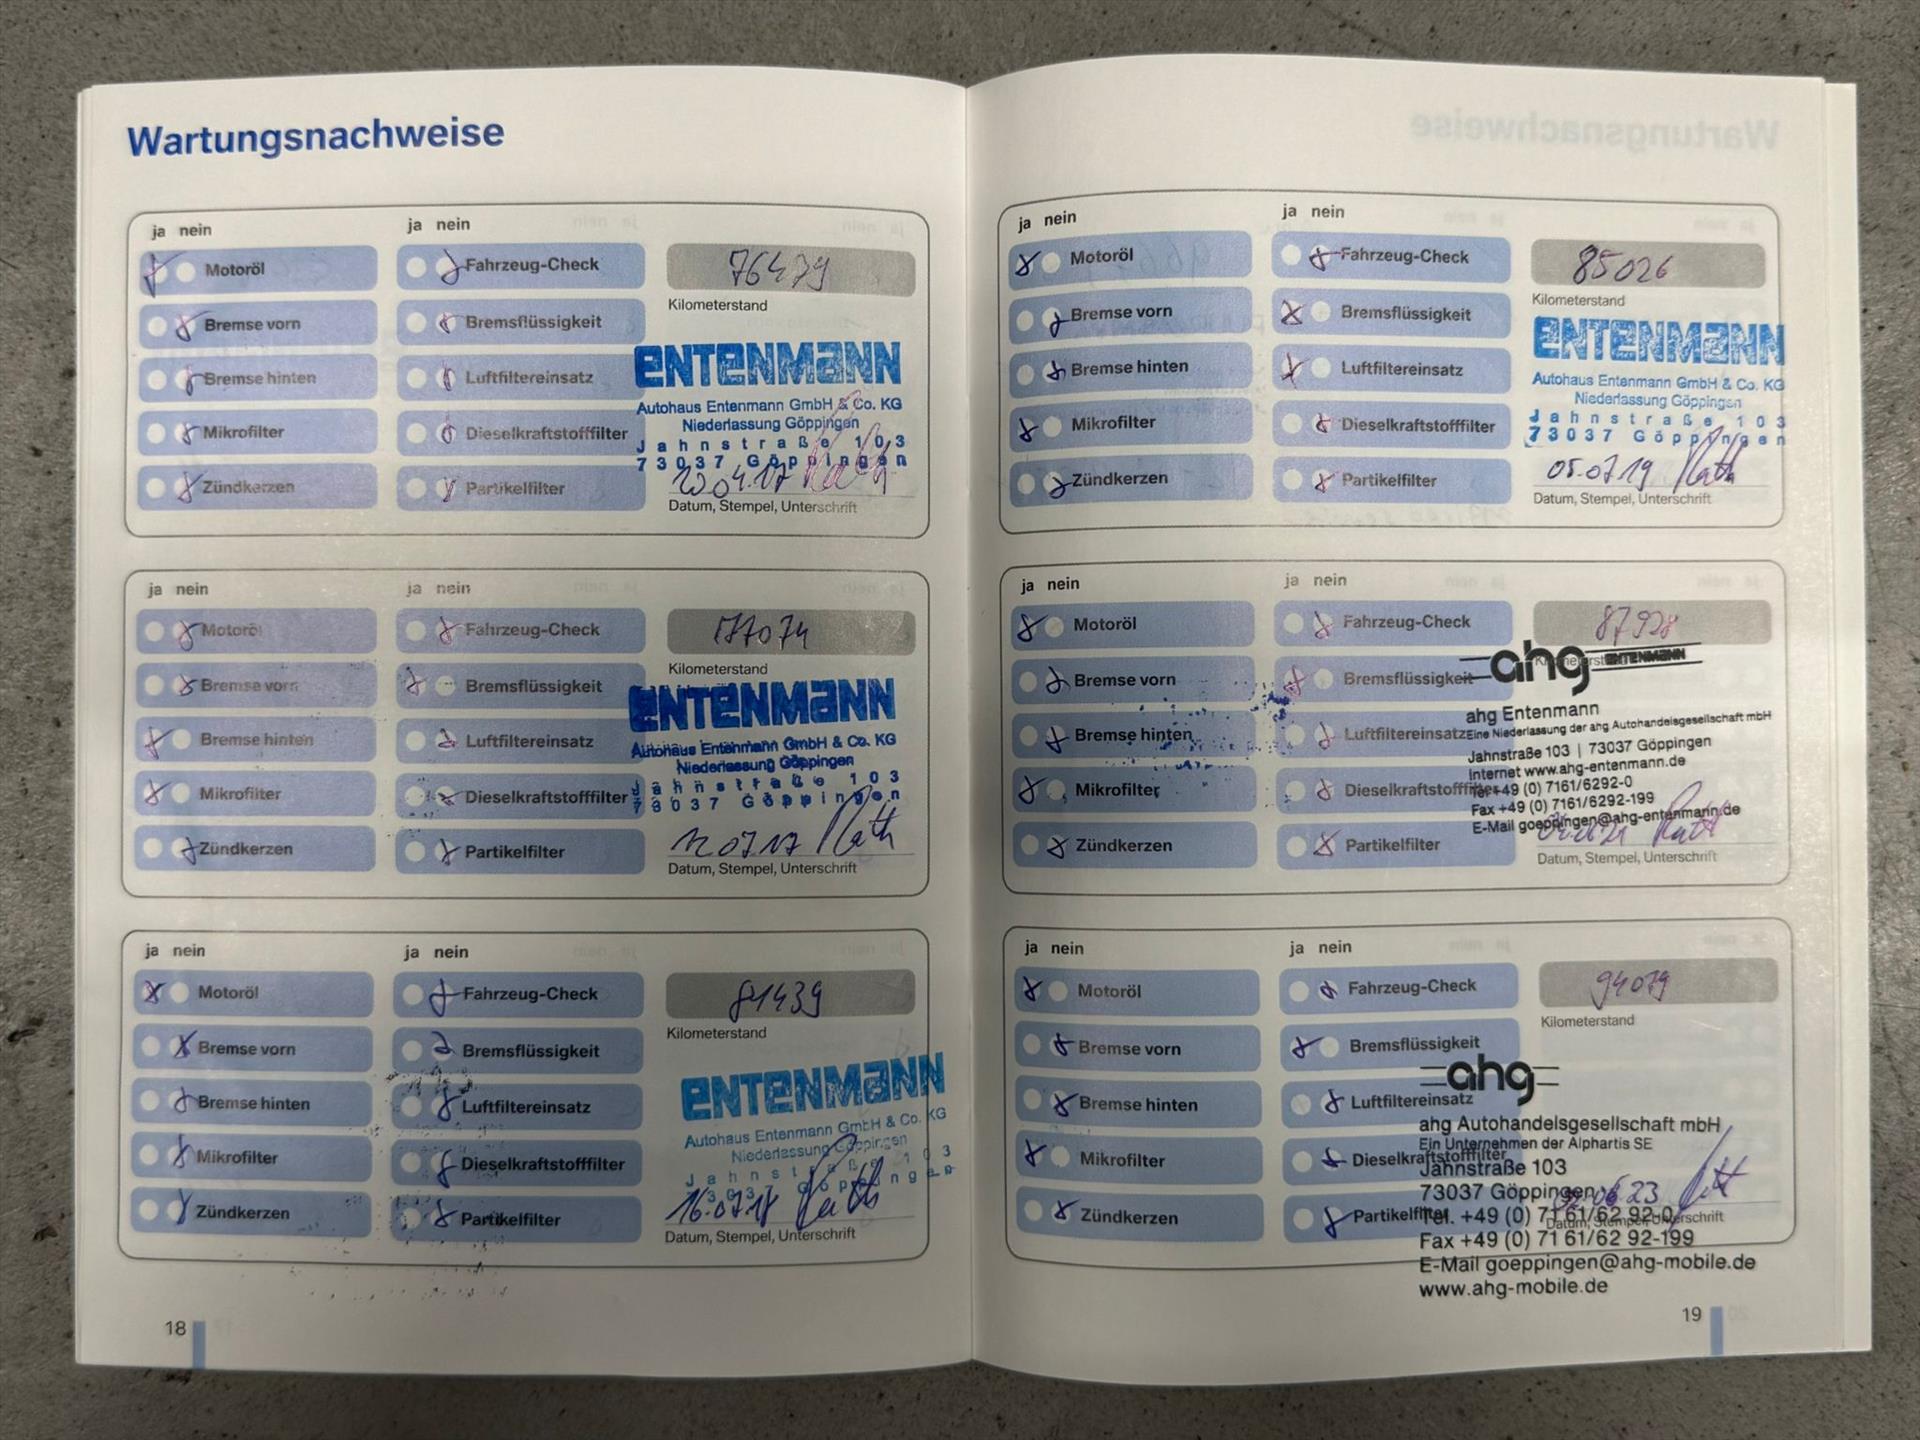 Wartungsnachweise
ja nein
Motoröl
Bremse vorn
Bremse hinten
Mikrofilter
Zündkerzen
ja nein
Fahrzeug-Check
Bremsflüssigkeit
Luftfiltereinsatz
Dieselkraftstofffilter
Partikelfilter
76479
Kilometerstand
ENTENMANN
Autohaus Entenmann GmbH & Co. KG
Niederlassung Göppingen
Jahnstraße 103
73037 Göppingen
20.04.17 Rath
Datum, Stempel, Unterschrift
ja nein
Motoröl
Bremse vorn
Bremse hinten
Mikrofilter
Zündkerzen
ja nein
Fahrzeug-Check
Bremsflüssigkeit
Luftfiltereinsatz
Dieselkraftstofffilter
Partikelfilter
77074
Kilometerstand
ENTENMANN
Autohaus Entenmann GmbH & Co. KG
Niederlassung Göppingen
Jahnstraße 103
73037 Göppingen
12.07.17 Rath
Datum, Stempel, Unterschrift
ja nein
Motoröl
Bremse vorn
Bremse hinten
Mikrofilter
Zündkerzen
ja nein
Fahrzeug-Check
Bremsflüssigkeit
Luftfiltereinsatz
Dieselkraftstofffilter
Partikelfilter
81439
Kilometerstand
ENTENMANN
Autohaus Entenmann GmbH & Co. KG
Niederlassung Göppingen
Jahnstraße 103
73037 Göppingen
16.07.18 Rath
Datum, Stempel, Unterschrift
18
ja nein
Motoröl
Bremse vorn
Bremse hinten
Mikrofilter
Zündkerzen
ja nein
Fahrzeug-Check
Bremsflüssigkeit
Luftfiltereinsatz
Dieselkraftstofffilter
Partikelfilter
85026
Kilometerstand
ENTENMANN
Autohaus Entenmann GmbH & Co. KG
Niederlassung Göppingen
Jahnstraße 103
73037 Göppingen
05.07.19 Rath
Datum, Stempel, Unterschrift
ja nein
Motoröl
Bremse vorn
Bremse hinten
Mikrofilter
Zündkerzen
ja nein
Fahrzeug-Check
Bremsflüssigkeit
Luftfiltereinsatz
Dieselkraftstofffilter
Partikelfilter
87928
Kilometerstand
ahg ENTENMANN
ahg Entenmann
Eine Niederlassung der ahg Autohandelsgesellschaft mbH
Jahnstraße 103 | 73037 Göppingen
Internet www.ahg-entenmann.de
Tel +49 (0) 7161/6292-0
Fax +49 (0) 7161/6292-199
E-Mail goeppingen@ahg-entenmann.de
Rath
Datum, Stempel, Unterschrift
ja nein
Motoröl
Bremse vorn
Bremse hinten
Mikrofilter
Zündkerzen
ja nein
Fahrzeug-Check
Bremsflüssigkeit
Luftfiltereinsatz
Dieselkraftstofffilter
Partikelfilter
94079
Kilometerstand
ahg
ahg Autohandelsgesellschaft mbH
Ein Unternehmen der Alphartis SE
Jahnstraße 103
73037 Göppingen
Tel. +49 (0) 71 61/62 92-0
Datum, Stempel, Unterschrift
Fax +49 (0) 71 61/62 92-199
E-Mail goeppingen@ahg-mobile.de
www.ahg-mobile.de
19